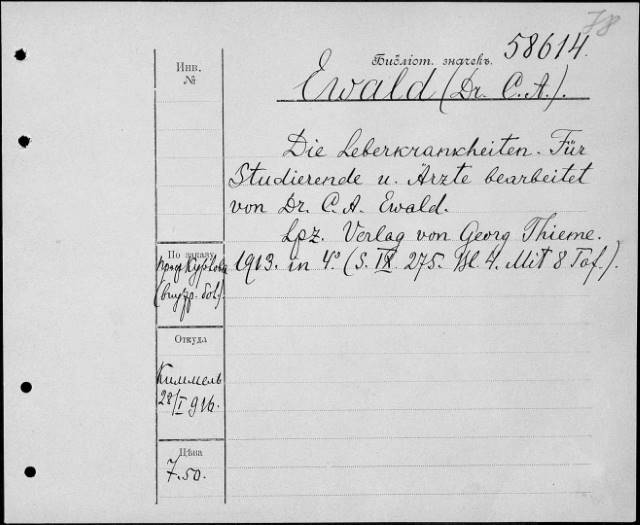 78
Библіот. значекъ. 58614.
Инв.
№
Ewald (Dr. C. A.).
Die Leberkrankheiten. Für
Studierende u. Ärzte bearbeitet
von Dr. C. A. Ewald.
Lpz. Verlag von Georg Thieme.
1913. in 4° (S. IX 275. Bl 4. Mit 8 Taf.).
По заказу
проф. Курлова
(внутр. бол.).
Откуда
Киммель
28/I 916.
Цѣна
7.50.